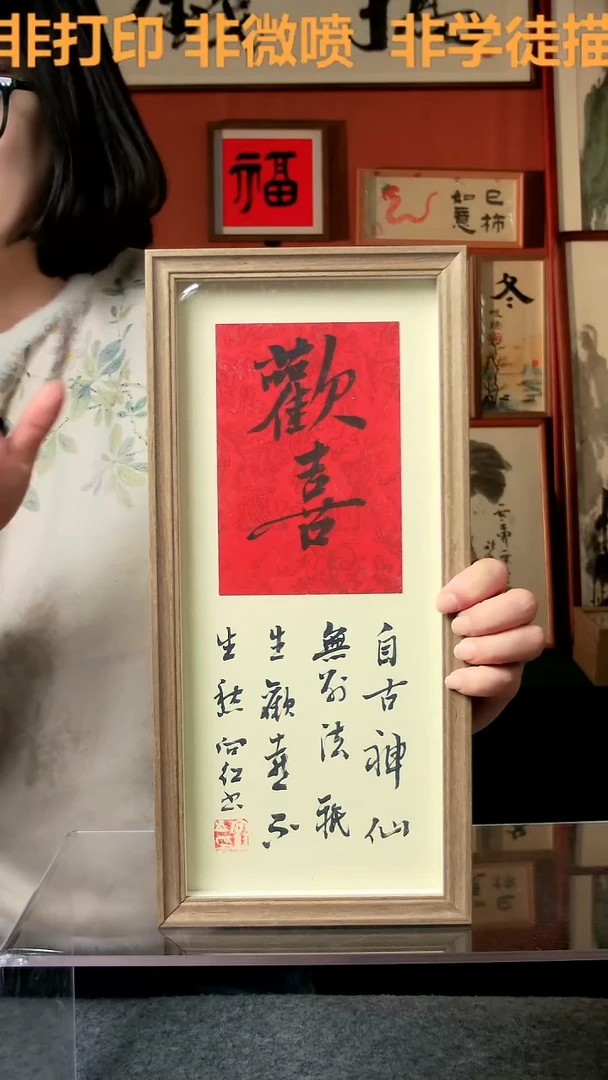 非打印 非微喷 非学徒描
福
巳柿
如意
冬
歡喜
自古神仙
無別法祇
生歡喜不
生愁向红书